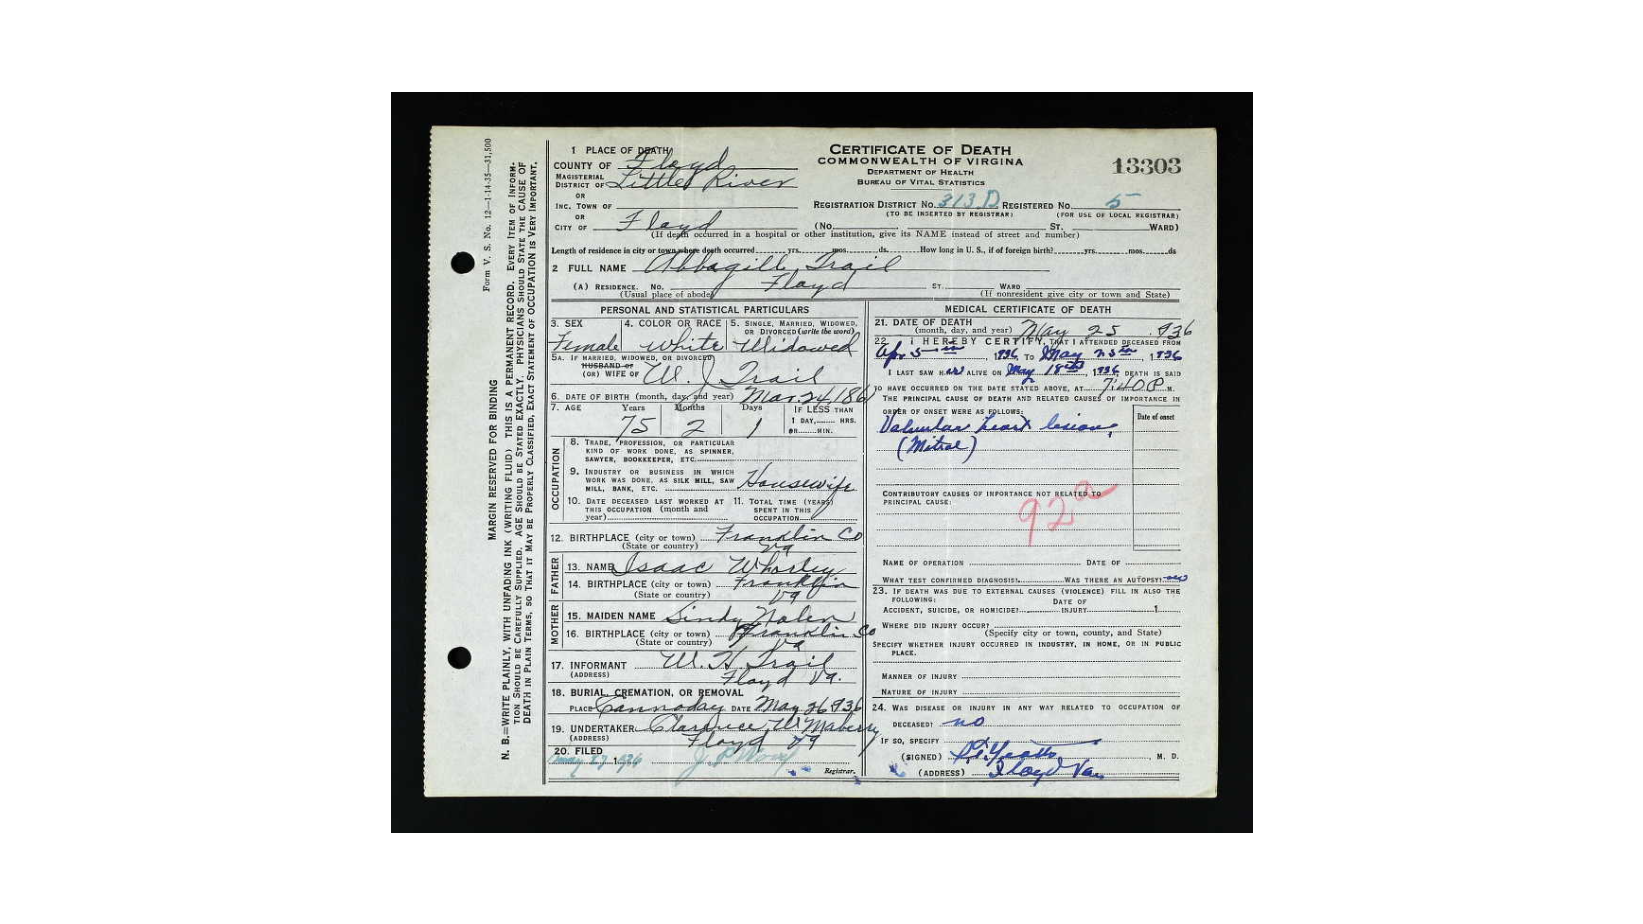 Form V. S. No. 12—1-14-35—31,500
MARGIN RESERVED FOR BINDING
N. B.—WRITE PLAINLY, WITH UNFADING INK (WRITING FLUID) THIS IS A PERMANENT RECORD. EVERY ITEM OF INFORM-
TION SHOULD BE CAREFULLY SUPPLIED. AGE SHOULD BE STATED EXACTLY. PHYSICIANS SHOULD STATE THE CAUSE OF
DEATH IN PLAIN TERMS, SO THAT IT MAY BE PROPERLY CLASSIFIED. EXACT STATEMENT OF OCCUPATION IS VERY IMPORTANT.
1 PLACE OF DEATH
COUNTY OF Floyd
MAGISTERIAL DISTRICT OF Little River
OR
INC. TOWN OF
OR
CITY OF Floyd
CERTIFICATE OF DEATH
COMMONWEALTH OF VIRGINIA
DEPARTMENT OF HEALTH
BUREAU OF VITAL STATISTICS
13303
REGISTRATION DISTRICT NO. 313 D REGISTERED NO. 5
(TO BE INSERTED BY REGISTRAR) (FOR USE OF LOCAL REGISTRAR)
(No. ST. WARD)
(If death occurred in a hospital or other institution, give its NAME instead of street and number)
Length of residence in city or town where death occurred yrs. mos. ds. How long in U. S., if of foreign birth? yrs. mos. ds
2 FULL NAME Abbagill Trail
(A) RESIDENCE. No. Floyd ST. WARD
(Usual place of abode) (If nonresident give city or town and State)
PERSONAL AND STATISTICAL PARTICULARS
3. SEX Female
4. COLOR OR RACE White
5. SINGLE, MARRIED, WIDOWED, OR DIVORCED (write the word) Widowed
5A. IF MARRIED, WIDOWED, OR DIVORCED
HUSBAND OF
(OR) WIFE OF W. J Trail
6. DATE OF BIRTH (month, day, and year) Mar. 24, 1861
7. AGE Years 75 Months 2 Days 1 IF LESS THAN 1 DAY, HRS. OR MIN.
OCCUPATION
8. TRADE, PROFESSION, OR PARTICULAR KIND OF WORK DONE, AS SPINNER, SAWYER, BOOKKEEPER, ETC.
9. INDUSTRY OR BUSINESS IN WHICH WORK WAS DONE, AS SILK MILL, SAW MILL, BANK, ETC. Housewife
10. DATE DECEASED LAST WORKED AT THIS OCCUPATION (month and year)
11. TOTAL TIME (YEARS) SPENT IN THIS OCCUPATION
12. BIRTHPLACE (city or town) Franklin Co
(State or country) Va
FATHER
13. NAME Isaac Whorley
14. BIRTHPLACE (city or town) Franklin
(State or country) Va
MOTHER
15. MAIDEN NAME Sindy Nolen
16. BIRTHPLACE (city or town) Franklin Co
(State or country) Va
17. INFORMANT W. H Trail
(ADDRESS) Floyd Va.
18. BURIAL, CREMATION, OR REMOVAL
PLACE Cannaday DATE May 26 1936
19. UNDERTAKER Clarence W Maberry
(ADDRESS) Floyd Va
20. FILED May 27, 1936
Registrar.
MEDICAL CERTIFICATE OF DEATH
21. DATE OF DEATH (month, day, and year) May 25 1936
22. I HEREBY CERTIFY, THAT I ATTENDED DECEASED FROM
Apr 5th, 1936, TO May 25th, 1936
I LAST SAW HER ALIVE ON May 18th, 1936, DEATH IS SAID
TO HAVE OCCURRED ON THE DATE STATED ABOVE, AT 7:40 P M.
THE PRINCIPAL CAUSE OF DEATH AND RELATED CAUSES OF IMPORTANCE IN
ORDER OF ONSET WERE AS FOLLOWS:
Date of onset
Valvular heart lesion,
(Mitral)
CONTRIBUTORY CAUSES OF IMPORTANCE NOT RELATED TO
PRINCIPAL CAUSE:
92a
NAME OF OPERATION DATE OF
WHAT TEST CONFIRMED DIAGNOSIS? WAS THERE AN AUTOPSY? no
23. IF DEATH WAS DUE TO EXTERNAL CAUSES (VIOLENCE) FILL IN ALSO THE
FOLLOWING:
ACCIDENT, SUICIDE, OR HOMICIDE? DATE OF INJURY 1
WHERE DID INJURY OCCUR?
(Specify city or town, county, and State)
SPECIFY WHETHER INJURY OCCURRED IN INDUSTRY, IN HOME, OR IN PUBLIC
PLACE.
MANNER OF INJURY
NATURE OF INJURY
24. WAS DISEASE OR INJURY IN ANY WAY RELATED TO OCCUPATION OF
DECEASED? no
IF SO, SPECIFY
(SIGNED) M. D.
(ADDRESS) Floyd Va